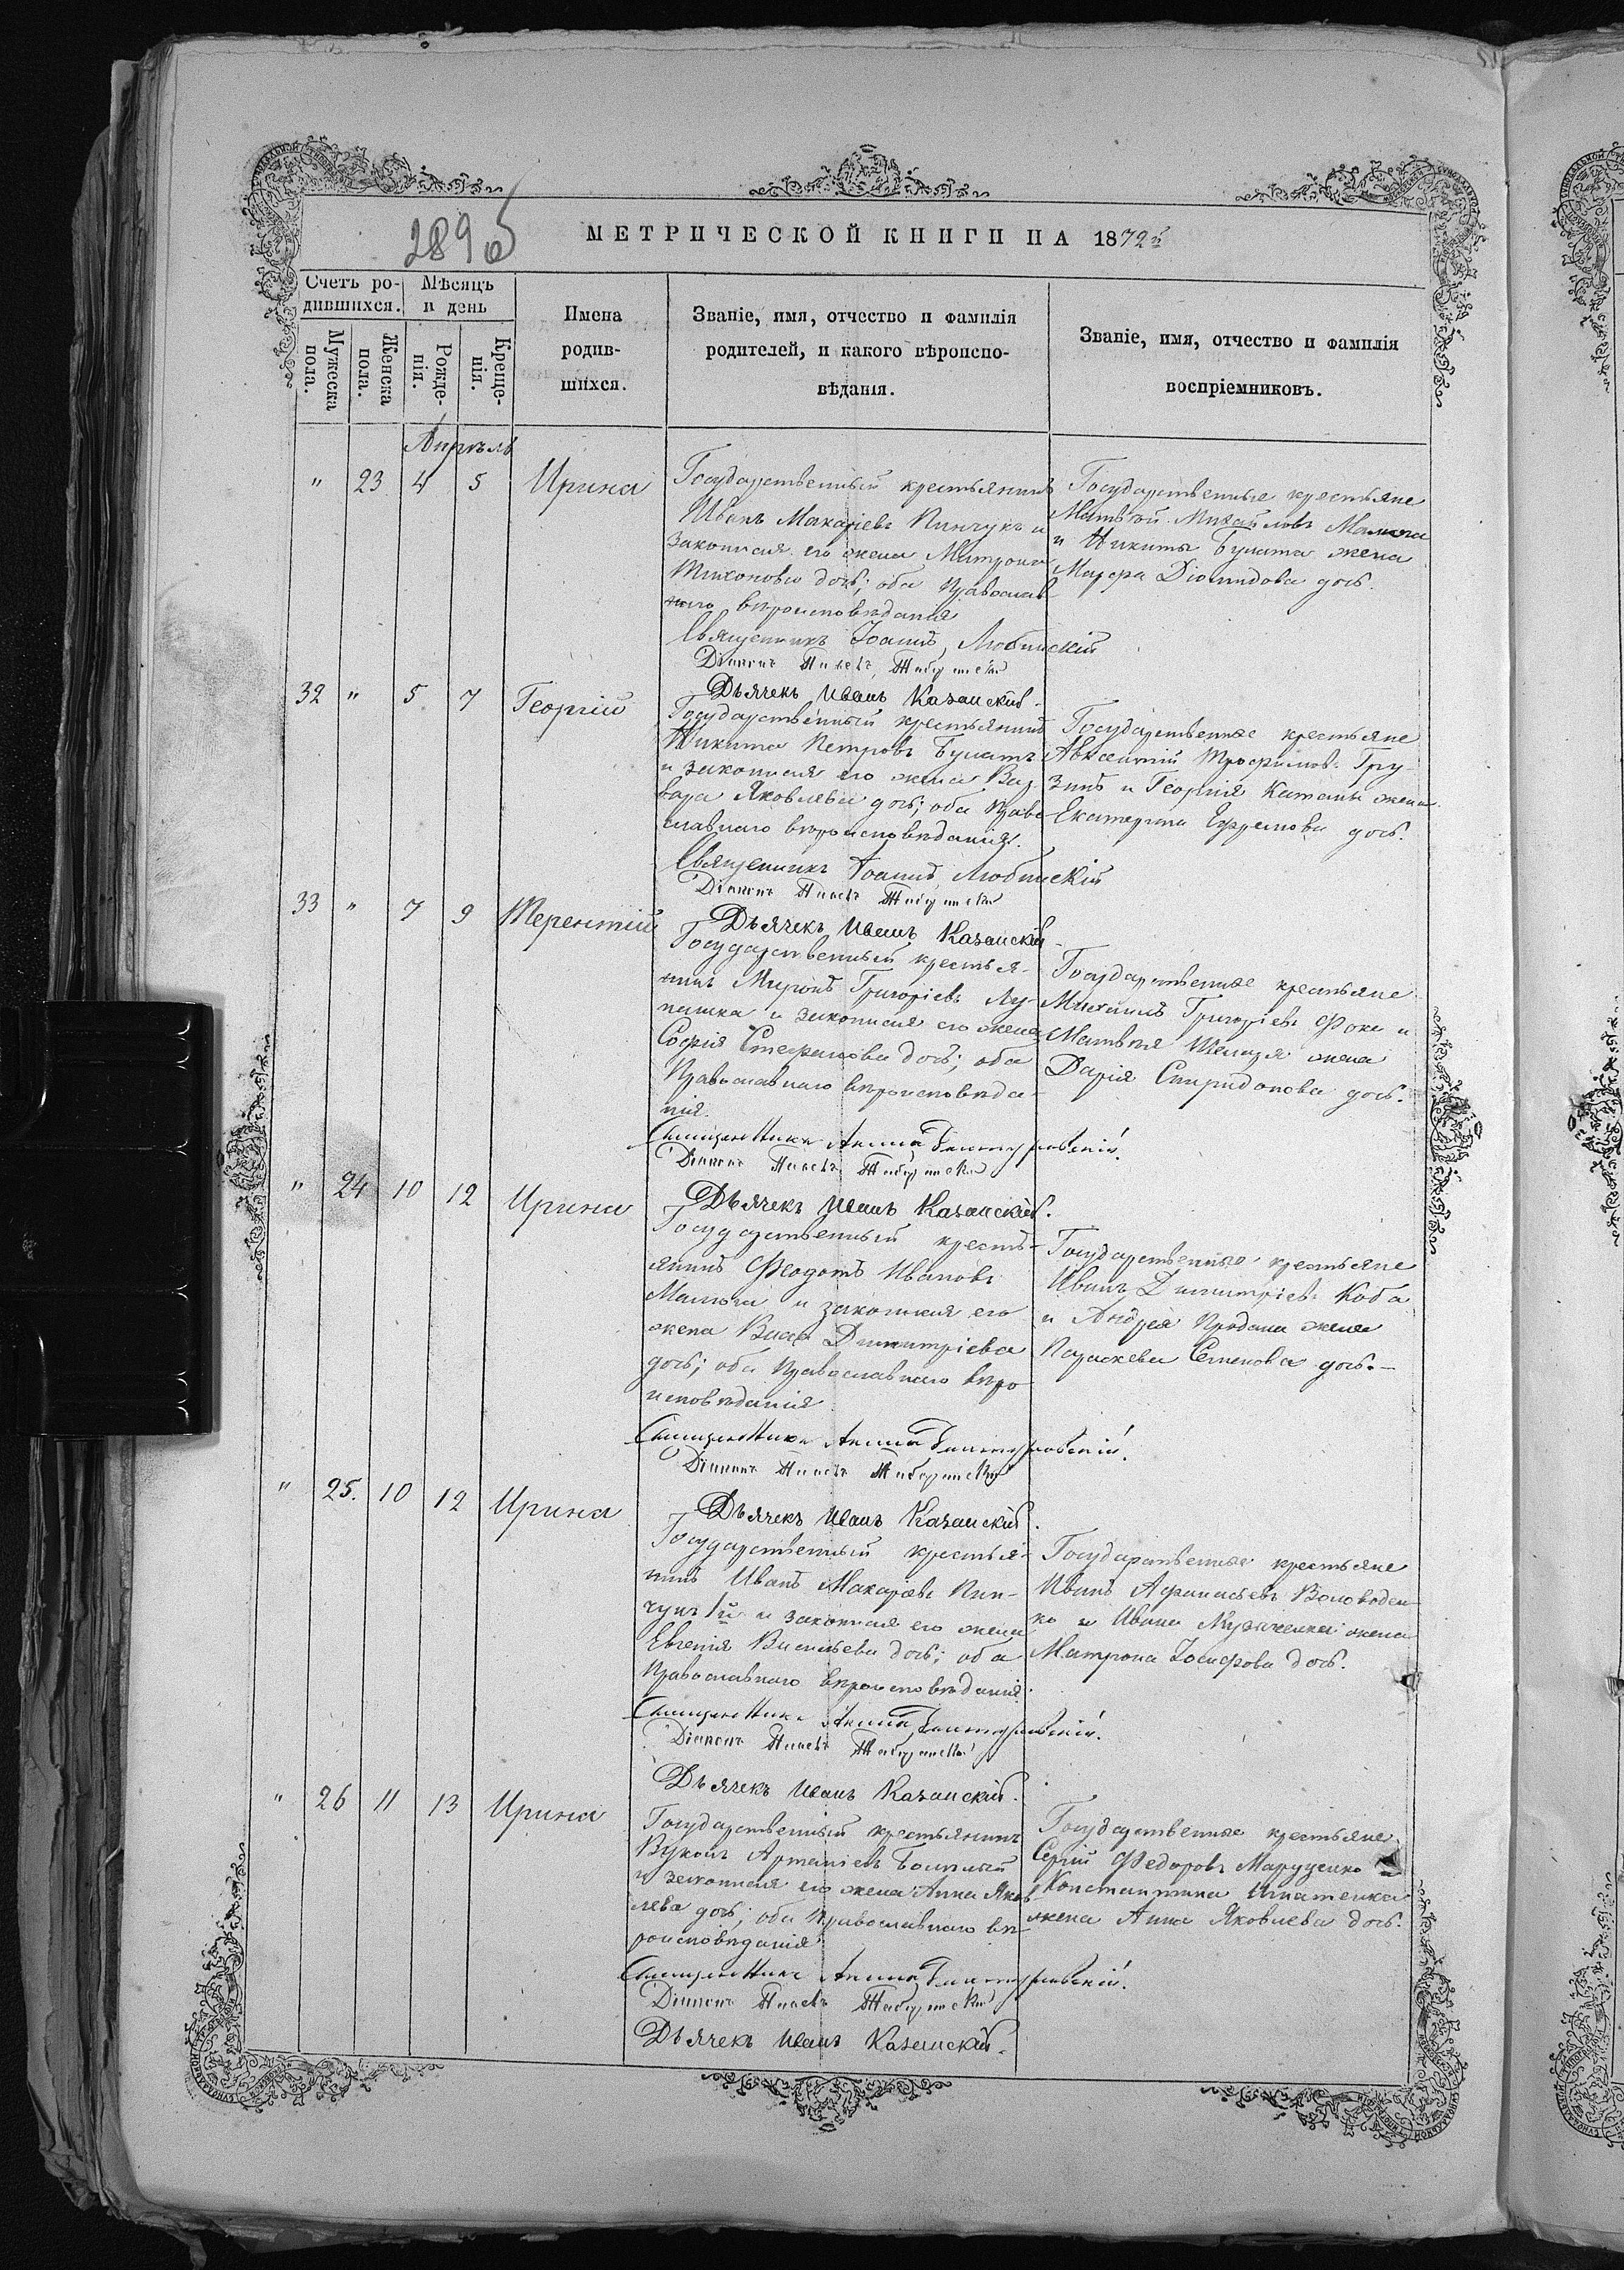 289б
МЕТРИЧЕСКОЙ КНИГИ НА 1872й
Счетъ ро-
дившихся.
Мѣсяцъ
и день
Мужеска
пола.
Женска
пола.
Рожде-
нія.
Креще-
нія.
Имена
родив-
шихся.
Званіе, имя, отчество и фамилія
родителей, и какого вѣроиспо-
вѣданія.
Званіе, имя, отчество и фамилія
воспріемниковъ.
Апрѣль
" 23 4 5 Ирина
Государственный крестьянинъ
Иванъ Макаріевъ Пинчукъ и
законная его жена Матрона
Тихонова дочь; оба Православ-
наго вѣроисповѣданія
Священникъ Іоаннъ Любинскій
Діаконъ
Дьячекъ Иванъ Казанскій.
Государственные крестьяне
Матѳей Михайловъ Малюга
и Никиты Булата жена
Марѳа Діомидова дочь.
32 " 5 7 Георгій
Государственный крестьянинъ
Никита Петровъ Булатъ
и законная его жена Вар-
вара Яковлева дочь; оба Право-
славнаго вѣроисповѣданія.
Священникъ Іоаннъ Любинскій
Діаконъ
Дьячекъ Иванъ Казанскій.
Государственные крестьяне
Авксентій Трофимовъ Гру-
зинъ и Георгія Катаны жена
Екатерина Ефремова дочь.
33 " 7 9 Терентій
Государственный крестья-
нинъ Миронъ Григоріевъ Лу-
пашка и законная его жена
Софія Стефанова дочь; оба
Православнаго вѣроисповѣда-
нія.
Священникъ
Діаконъ
Дьячекъ Иванъ Казанскій.
Государственные крестьяне
Михаилъ Григоріевъ Фока и
Матвѣя жена
Дарія Спиридонова дочь.
" 24 10 12 Ирина
Государственный кресть-
янинъ Ѳеодотъ Ивановъ
Малюга и законная его
жена Васса Димитріева
дочь; оба Православнаго вѣро
исповѣданія
Священникъ
Діаконъ
Дьячекъ Иванъ Казанскій.
Государственные крестьяне
Иванъ Димитріевъ Коба
и Андрея Продана жена
Параскева Семенова дочь.—
" 25. 10 12 Ирина
Государственный крестья-
нинъ Иванъ Макаріевъ Пин-
чукъ 1й и законная его жена
Евгенія Васильева дочь; оба
Православнаго вѣроисповѣданія.
Священникъ
Діаконъ
Дьячекъ Иванъ Казанскій.
Государственные крестьяне
Иванъ Афанасьевъ Воловоден-
ко и Ивана Музыченка жена
Матрона Іосифова дочь.
" 26 11 13 Ирина
Государственный крестьянинъ
Вуколъ Артеміевъ
и законная его жена Анна Яков-
лева дочь; оба Православнаго вѣ-
роисповѣданія
Священникъ
Діаконъ
Дьячекъ Иванъ Казанскій.
Государственные крестьяне
Сергій Ѳедоровъ Маруценко и
Константина Игнатенка
жена Анна Яковлева дочь.